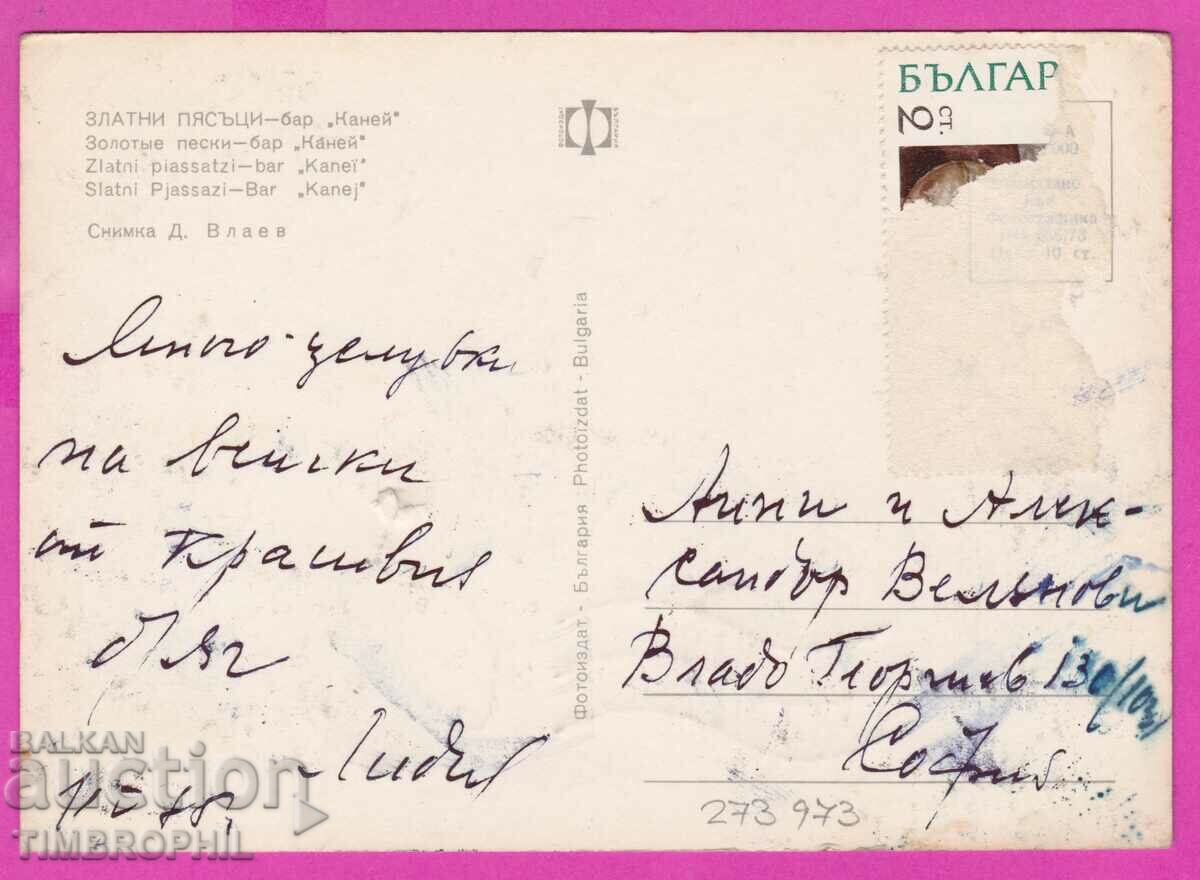 ЗЛАТНИ ПЯСЪЦИ—бар „Каней"
Золотые пески—бар „Каней"
Zlatni piassatzi—bar „Kaneï"
Slatni Pjassazi—Bar „Kanej"
Снимка Д. Влаев
ФОТОИЗДАТ
БЪЛГАРИЯ
БЪЛГАР
2 СТ.
10 ст.
Много целувки
на всички
от красивия
бряг
Лидия
Фотоиздат - България · Photoïzdat - Bulgaria
Анни и Алек-
сандър Велянови
Владо Георгиев 130/103
София
273 973
BALKAN
auction
TIMBROPHIL